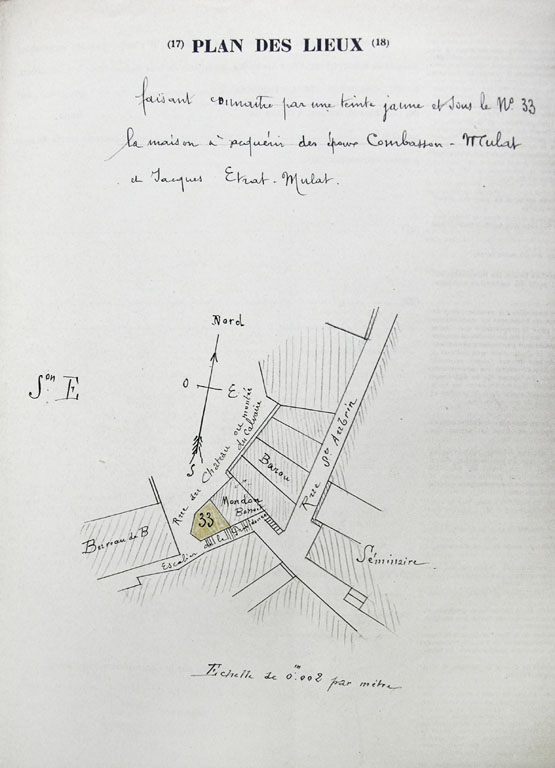 (17) PLAN DES LIEUX (18)
faisant connaître par une teinte jaune et sous le N° 33
la maison à acquérir des époux Combasson - Mulat
et Jacques Etrat - Mulat.
Nord
Son E
O
E.
S
Rue du Château ou montée
du Calvaire
Rue St Aubrin
Barou
Mondon
33
Bureau de B
Escalier de la
Séminaire
Echelle de 0m.002 par mètre